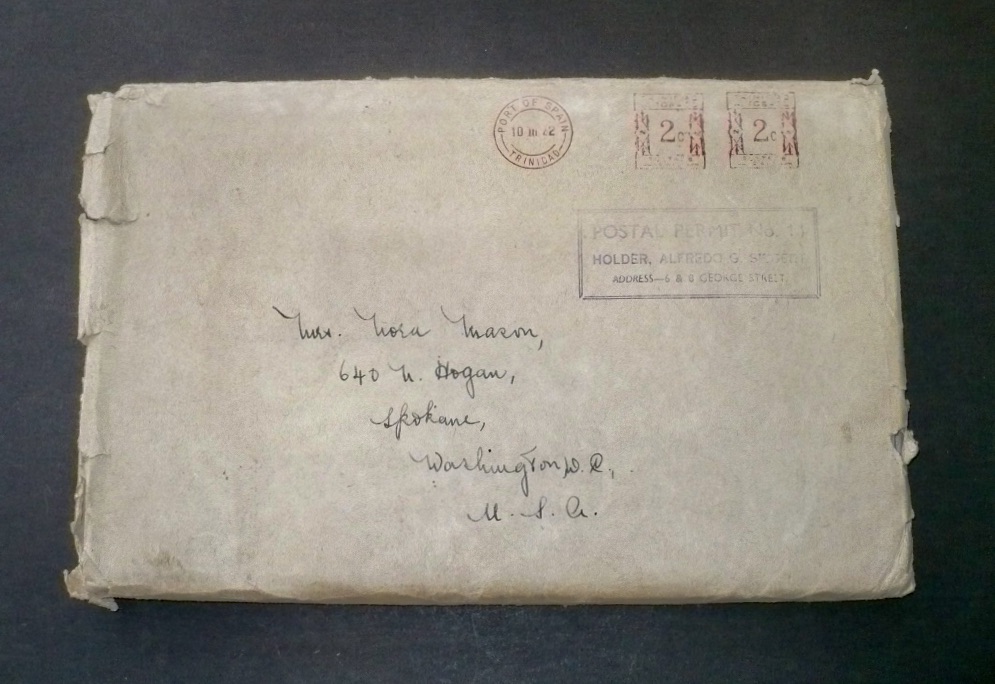 PORT OF SPAIN
10 III 42
TRINIDAD
2c 2c
POSTAL PERMIT No. 11
HOLDER, ALFREDO G.
ADDRESS—6 & 8 GEORGE STREET
Mrs. Nora Mason,
640 N. Hogan,
Spokane,
Washington, D.C.,
U.S.A.